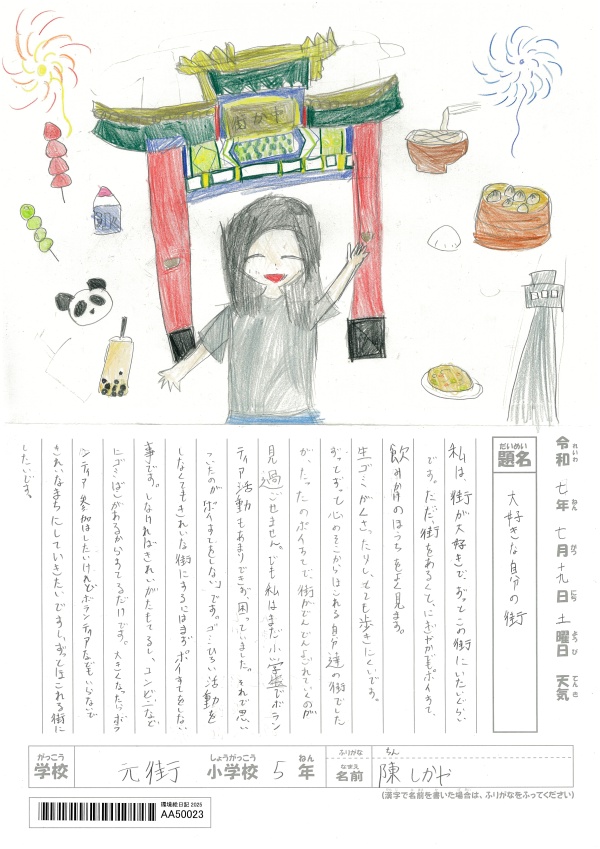 令和 七年 七月 十九日 土曜日 天気
れいわ ねん がつ にち ようび てんき
だいめい
題名
大好きな自分の街
私は、街が大好きで、ずっとこの街にいたいぐらい
です。ただ、街をあるくて、にぎやかでもポイすて、
飲みかけのほうちをよく見ます。
生ゴミがくさったりし、とても歩きにくいです。
ずっとずっと心のそこからほこれる自分達の街でした
が、たったのポイすてで、街がどんどんよごれていくのが
見過ごせません。でも私はまだ小学生でボラン
ティア活動もあまりできず、困っていました。それで思い
ついたのが「ポイすてをしない」です。ゴミひろい活動を
しなくてもきれいな街にするにはまずポイすてをしない
事です。しなければきれいがたもてるし、コンビニなど
にゴミばこがあるからすてるだけです。大きくなったらボラ
ンティア参加はしたいけれどボランティアなどもいらないで
きれいなまちにしていきたいですし、ずっとほこれる街に
したいです。
がっこう しょうがっこう ねん
学校 元街 小学校 5年
ふりがな ちん
なまえ
名前 陳しかや
(漢字で名前を書いた場合は、ふりがなをふってください)
環境絵日記 2025
AA50023